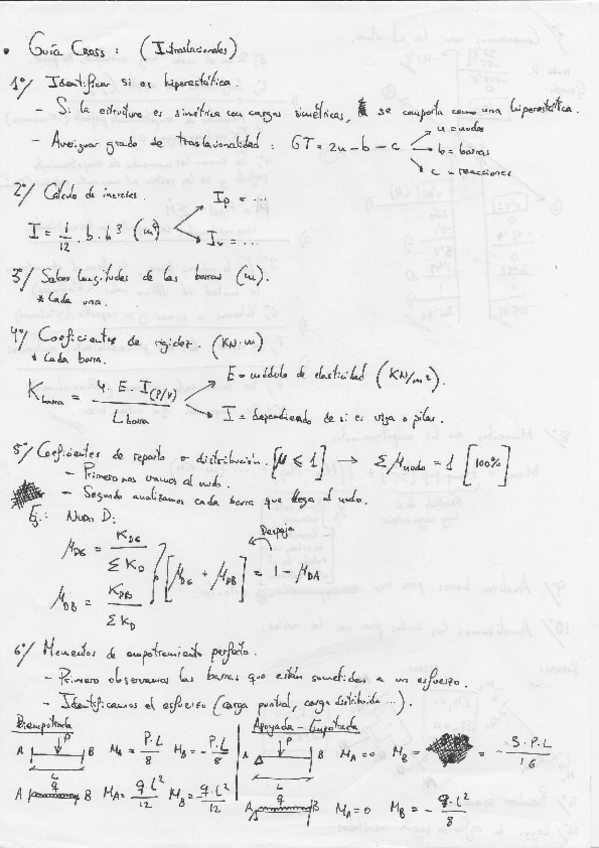 • Guía Cross: (Intraslacionales)
1º/ Identificar si es hiperestática.
- Si la estructura es simétrica con cargas simétricas, se comporta como una hiperestática.
- Averiguar grado de traslacionalidad: GT = 2u - b - c
u = nudos
b = barras
c = reacciones
2º/ Cálculo de inercias.
I = 1/12 · b · h³ (m⁴)
Ip = ...
Iv = ...
3º/ Saber longitudes de las barras (m).
* Cada una.
4º/ Coeficientes de rigidez. (KN·m)
* Cada barra.
K barra = 4 · E · I(P/V) / L barra
E = módulo de elasticidad (KN/m²).
I = dependiendo de si es viga o pilar.
5º/ Coeficientes de reparto o distribución. [μ ≤ 1] → Σ μ nudo = 1 [100%]
- Primero nos vamos al nudo.
- Segundo analizamos cada barra que llega al nudo.
Ej.: Nudo D:
μDG = KDG / ΣKD
μDB = KDB / ΣKD
[μDG + μDB] = 1 - μDA
Despeja
6º/ Momentos de empotramiento perfecto.
- Primero observamos las barras que están sometidas a un esfuerzo.
- Identificamos el esfuerzo (carga puntual, carga distribuida...).
Biempotrada
A P B L MA = P·L/8 MB = - P·L/8
A q B MA = q·l²/12 MB = - q·l²/12
Apoyada - Empotrada
A P B L MA = 0 MB = = - 3·P·L/16
A q B MA = 0 MB = - q·l²/8